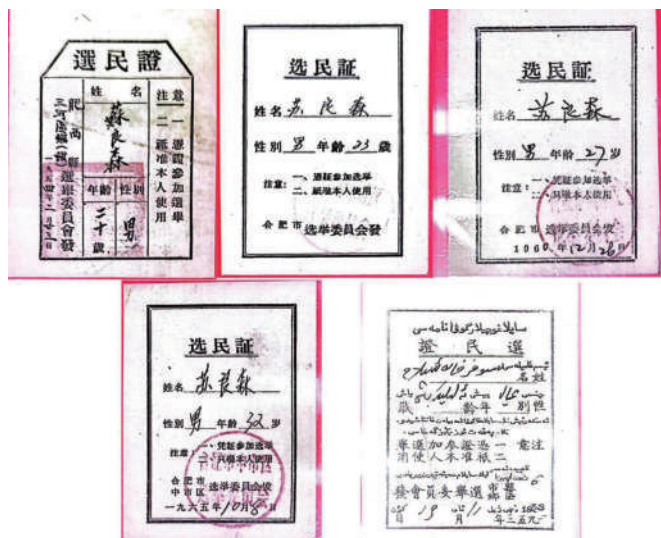 選民證
姓名
蘇良森
性別
男
年齡
二十歲
注意
一 憑證參加選舉
二 祇准本人使用
肥西縣
三河區鎮(鄉)選舉委員會發
一九五四年二月廿三日
选民証
姓名 苏良森
性别 男 年龄 23 歲
注意: 一、憑証参加选举
二、祇准本人使用
合肥市 选举委員会發
选民証
姓名 苏良森
性别 男 年龄 27 岁
注意: 一、凭証参加选举
二、只准本人使用
合肥市 选举委员会发
1960 年 12 月 26 日
选民証
姓名 苏良森
性别 男 年龄 32 岁
注意: 一、凭証参加选举
二、只准本人使用
合肥市
中市区 选举委员会发
一九六五年 10 月 8 日
證 民 選
名姓
歲 齡年 別性
舉選加參證憑 一 意注
用使人本准祇二
發會員委舉選
日 19 月 11 年三五九一